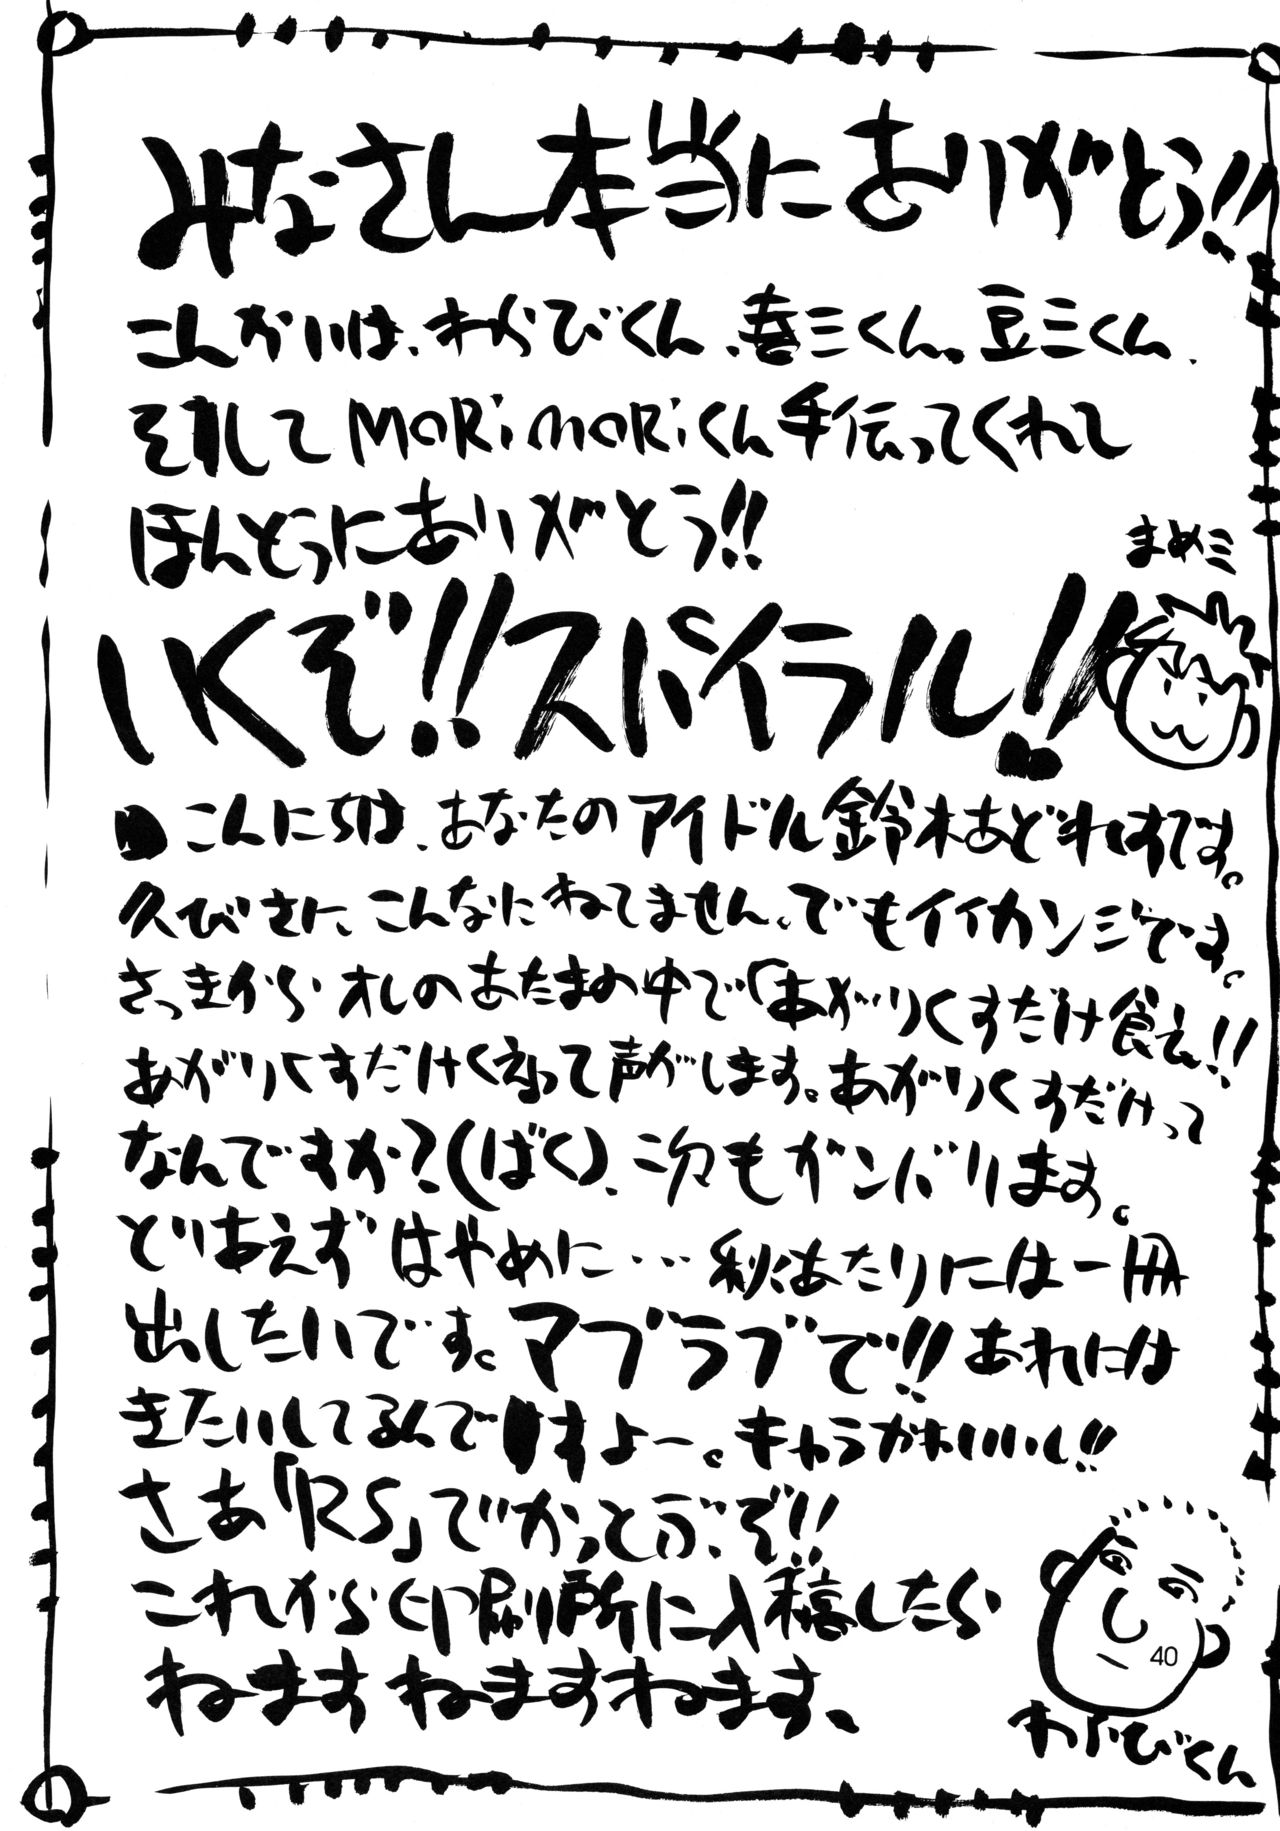 みなさん本当にありがとう!!
こんかいは、わらびくん、喜三くん。豆三くん、
そして MORiMORiくん手伝ってくれて
ほんどうにありがとう!!
まめ三
いくぞ!!スパイラル!!
こんにちは、あなたのアイドル鈴木あどれすです。
久びさに、こんなにねてません。でもイイカンジです。
さっきからオレのあたまの中で「あがりくすだけ食え!!
あがりくすだけくえって声がします。あがりくすだけって
なんですか?(ばく)、次もガンバります。
とりあえずはやめに…秋あたりには一冊
出したいです。マブラブで!!あれには
きたいしてるんですよー。キャラかわいいし!!
さあ「RS」でかっとぶぞ!!
これから印刷所に入稿したら
ねますねますねます、
40
わらびくん